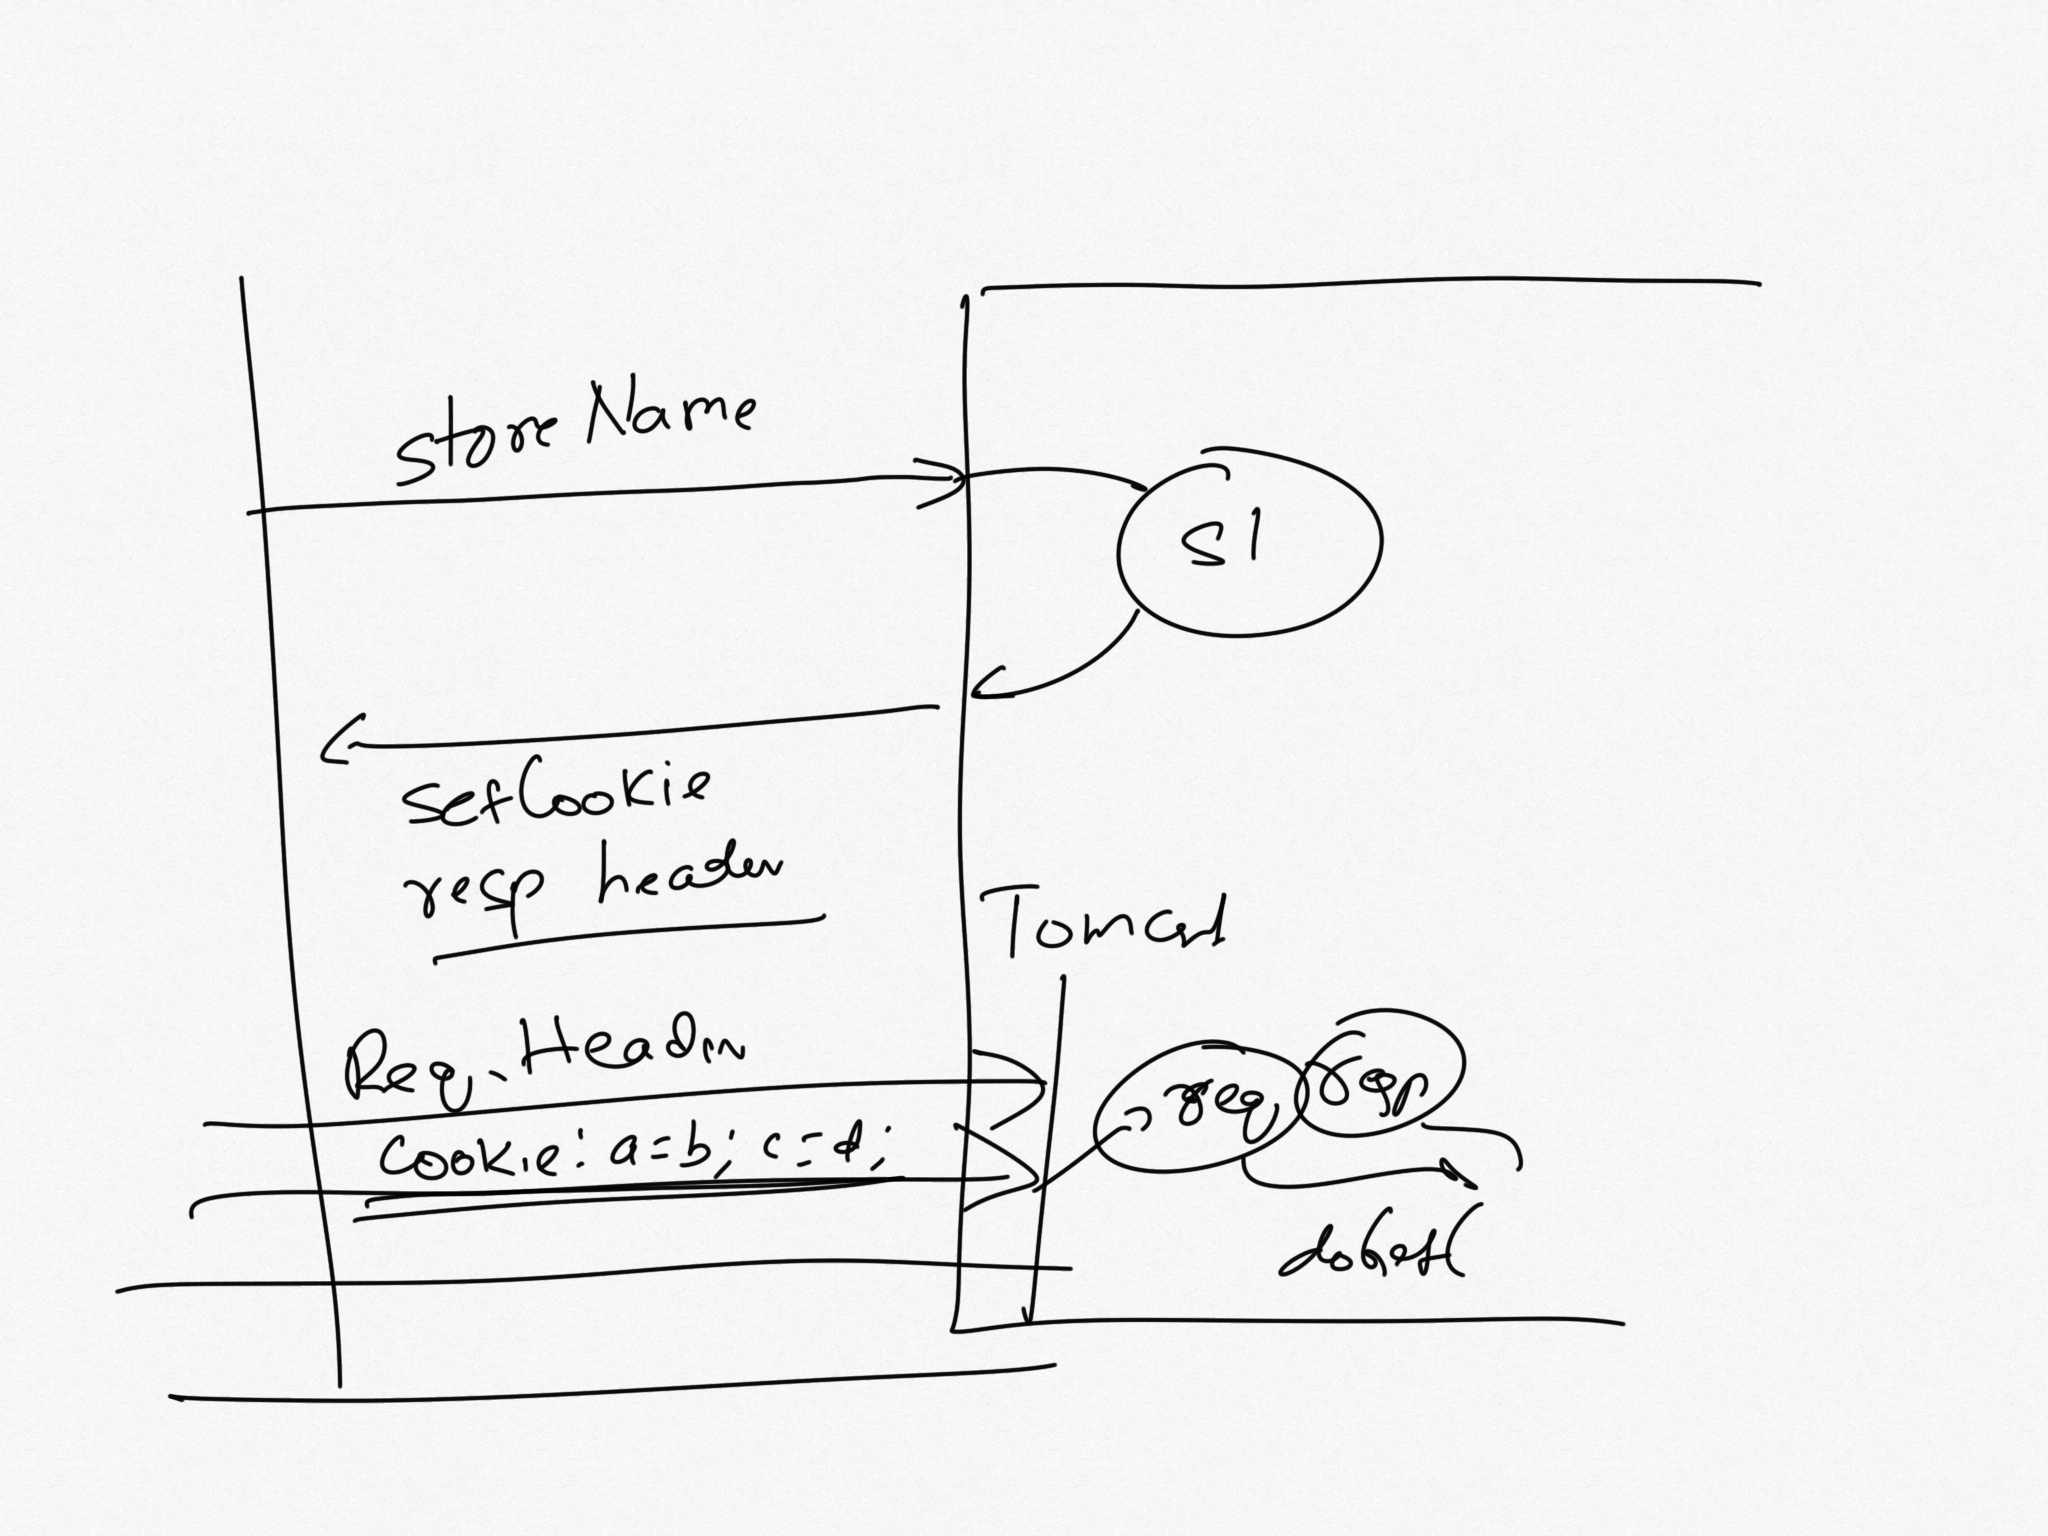 storeName
S1
setCookie
resp header
Tomcat
Req. Header
Cookie: a=b; c=d;
req
resp
doGet(